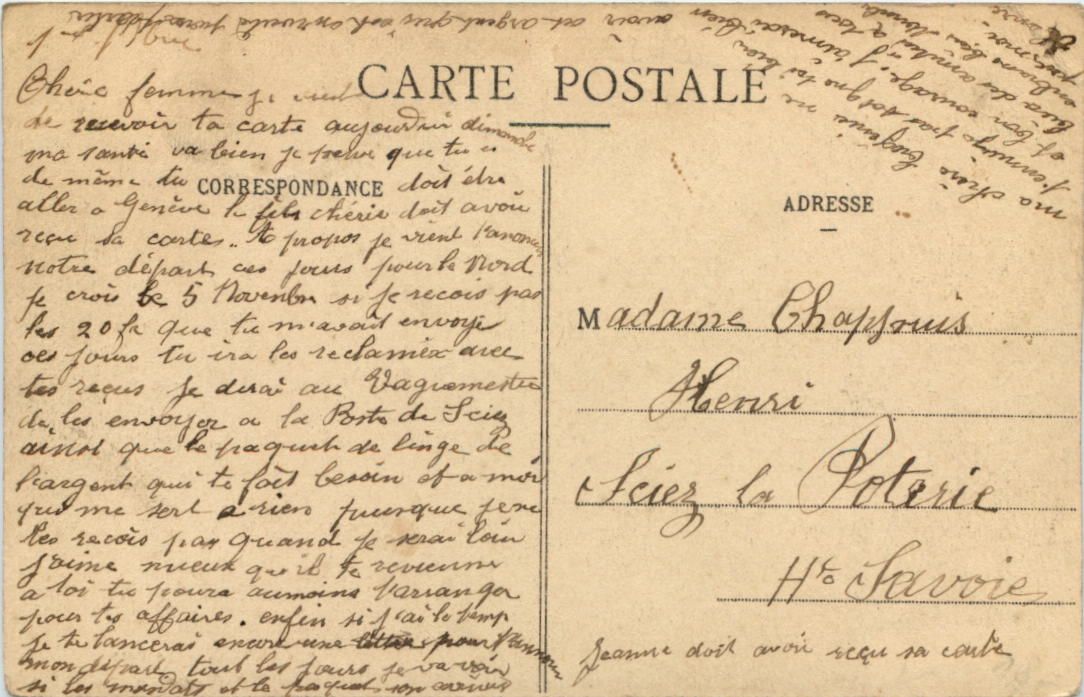 CARTE POSTALE
CORRESPONDANCE
ADRESSE
Chère femme je vient
de recevoir ta carte aujourdui dimanche
ma santé va bien je pense que tu es
de même tu doit être
aller a Genève le fils chérie doit avoir
reçu sa cartes.. A propos je vient t'anoncer
notre départ ces jours pour le Nord
je crois le 5 Novembre si je recois pas
les 20 fr que tu m'avait envoye
ces jours tu ira les reclamer avec
tes reçus je dirai au Vaguemestre
de les envoyer a la Poste de Sciez
ainsi que le paquet de linge de
l'argent qui te fait besoin et a moi
qui me sert a rien puisque je ne
les recois pas quand je serai loin
j'aime mieux qu'il te revienne
a toi tu poura aumoins t'arranger
pour tes affaires. enfin si j'ai le temp
je te lancerai encore une lettre pour
mon départ tout les jours je va voir
si les mandats et le paquet son arrivés
avoir cet argent
ma chère
t'ennuye pas soigne toi bien
et bon courage
Madame Chappuis
Henri
Sciez la Poterie
Hte Savoie
Jeanne doit avoir reçu sa carte